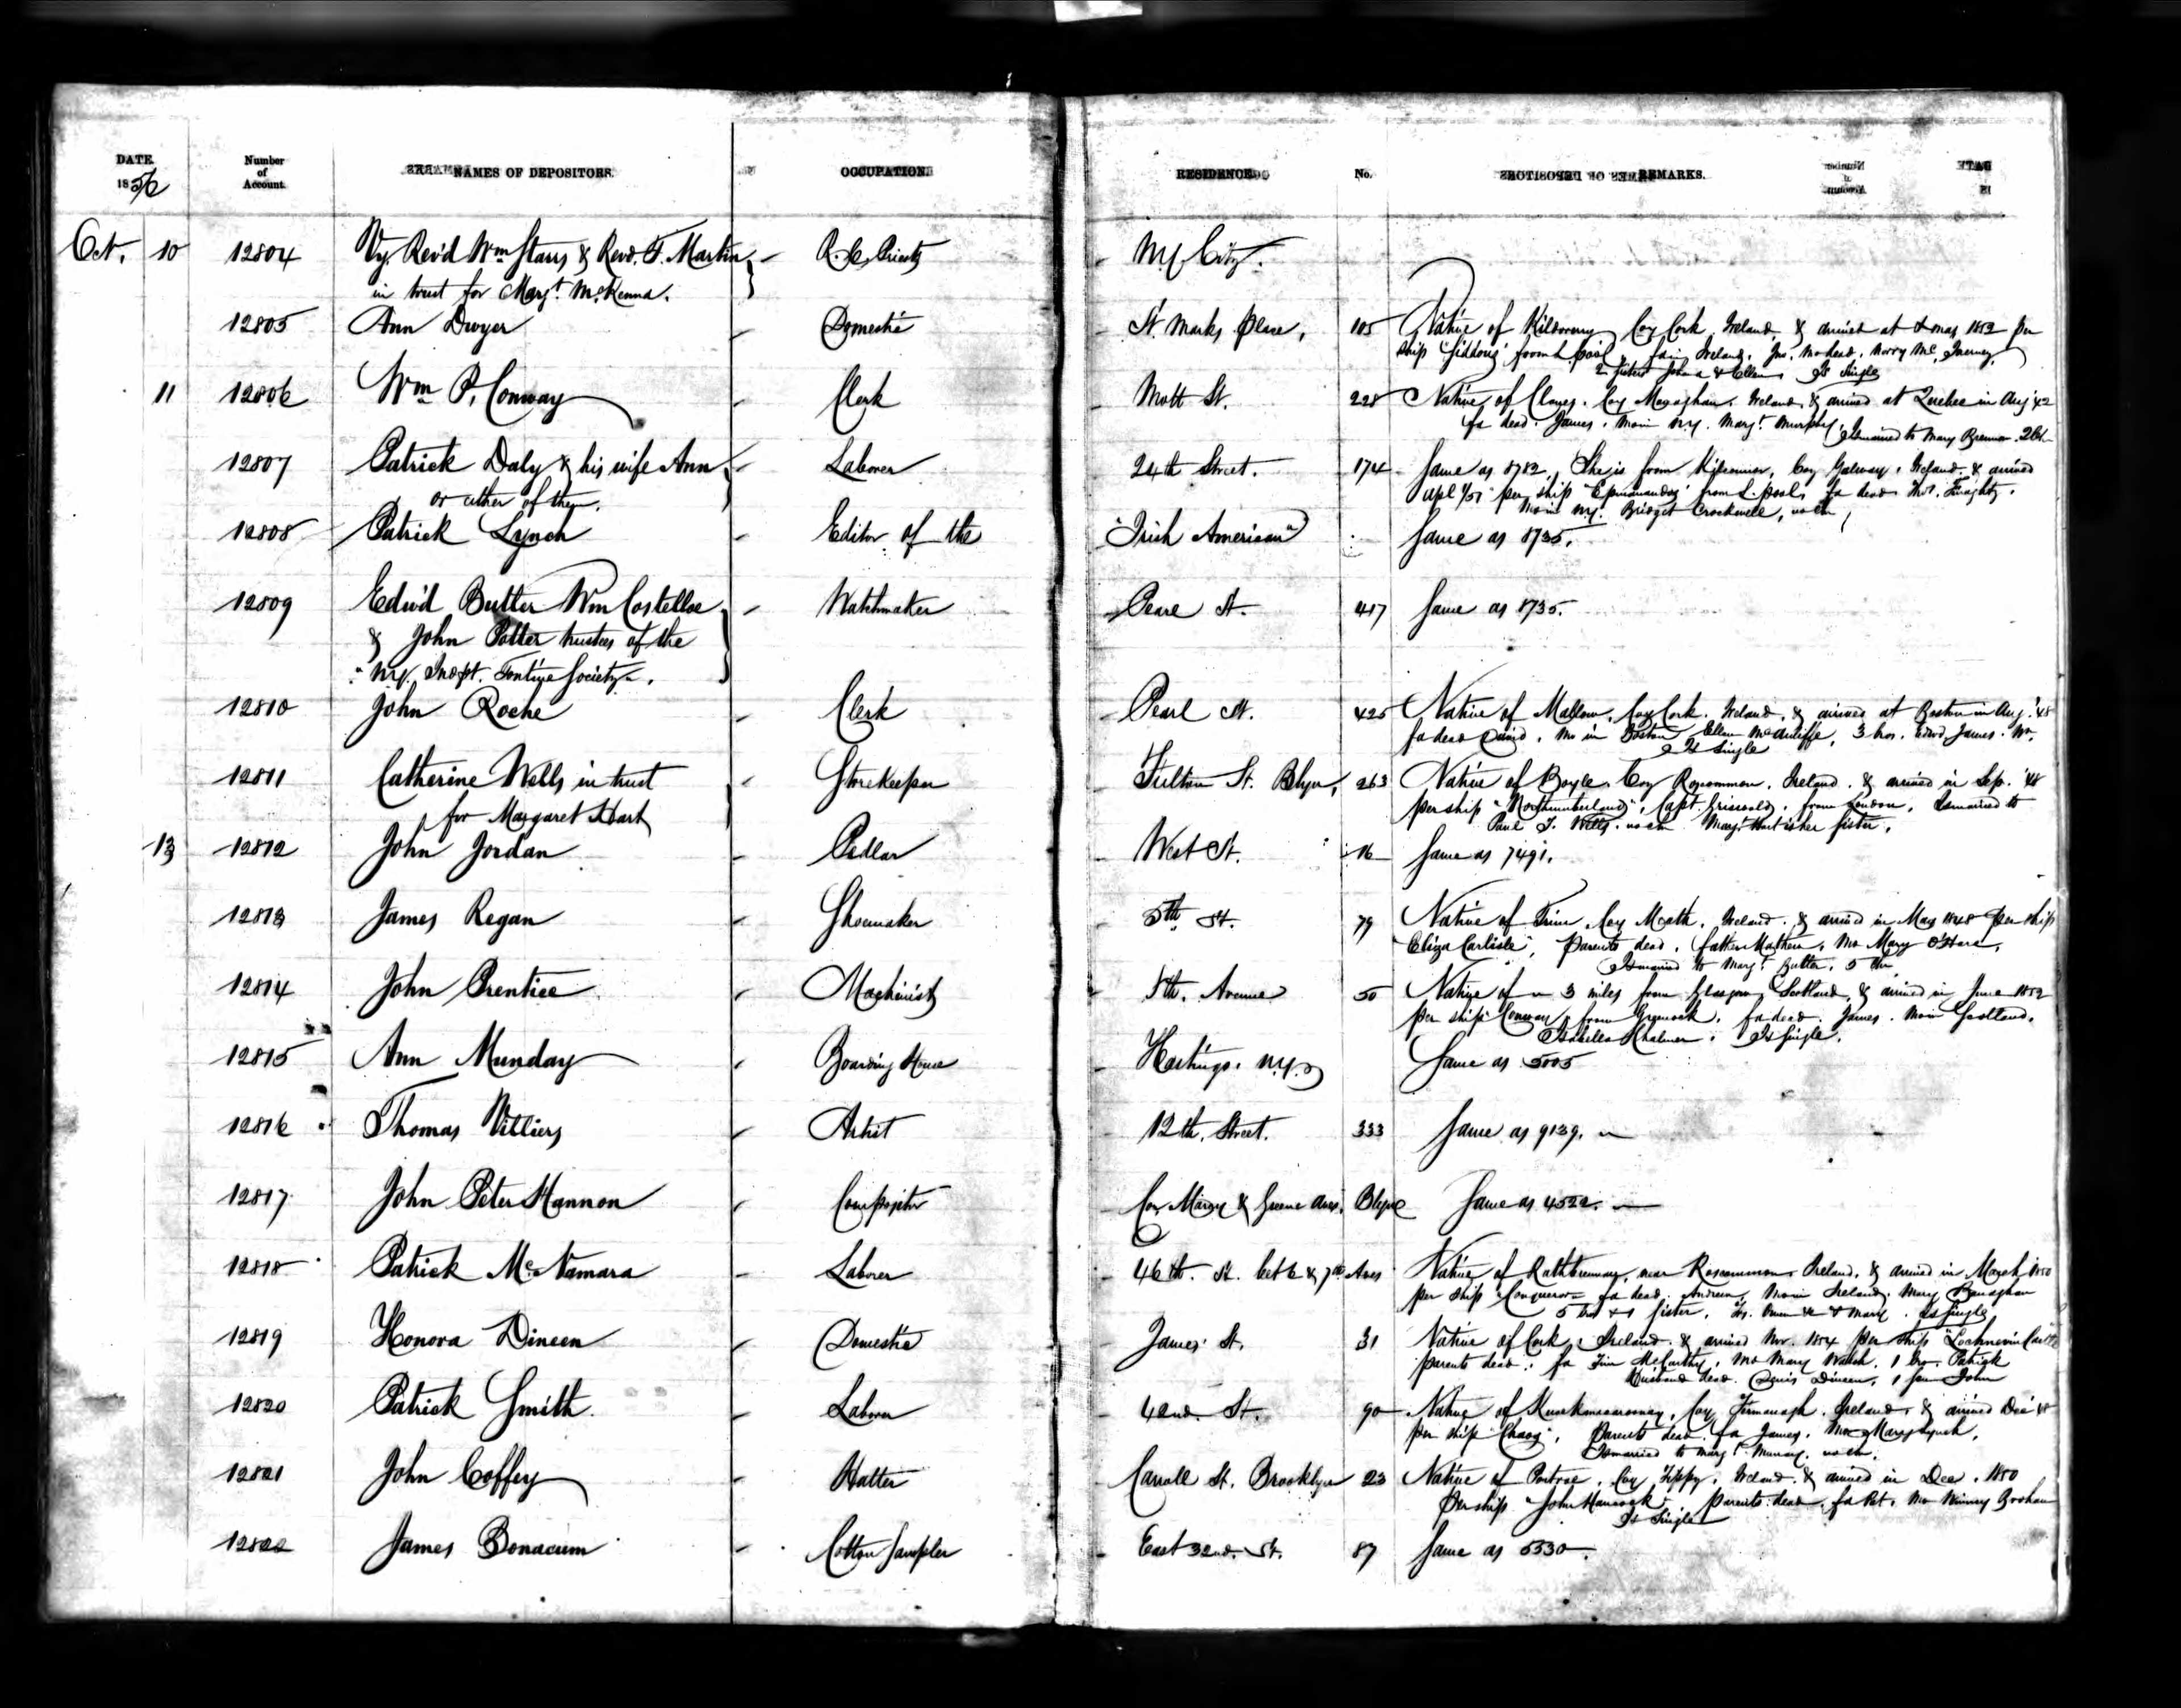 DATE 1856 Number of Account. NAMES OF DEPOSITORS. OCCUPATION. RESIDENCE. No. REMARKS.
Oct. 10 12804 Vy. Rev'd Wm Starrs & Revd. T. Martin R. C. Priests N.Y. City.
in trust for Margt. McKenna.
12805 Ann Dwyer Domestic St. Marks Place, 105 Native of Kildorrery Coy Cork, Ireland, & arrived at Xmas 1852 per
ship "Siddons" from L.pool, fa in Ireland, Jno. Mo dead,
2 sisters & Ellen Is Single
11 12806 Wm P. Conway Clerk Mott St. 228 Native of Clones. Coy Monaghan. Ireland, & arrived at Quebec in Aug '42
fa dead. James. Mo in N.Y. Margt. Murphy. Is married to Mary Brennan. 2 ch
12807 Patrick Daly & his wife Ann Laborer 24th Street. 174 Same as 8782, She is from Coy Galway. Ireland. & arrived
or either of them. Apl 1/51 per ship "Epaminondas" from L.pool, fa dead
Mo in N.Y. Bridget Crockwell, no ch
12808 Patrick Lynch Editor of the "Irish American" Same as 8735.
12809 Edw'd Butler Wm Costelloe Watchmaker Pearl St. 417 Same as 8735.
& John Potter trustees of the
"N.Y. Indpt. Tontine Society".
12810 John Roche Clerk Pearl St. 425 Native of Mallow. Coy Cork. Ireland, & arrived at Boston in Aug. '48
fa dead David, Mo in Boston Ellen McAuliffe, 3 bros. Edwd, James. Wm.
Is Single
12811 Catherine Wells in trust Storekeeper Fulton St. Bklyn, 263 Native of Boyle. Coy Roscommon. Ireland. & arrived in Sep. '48
for Margaret Hart per ship "Northumberland", Capt. Griswold, from London, Is married to
Paul J. Wells. no ch Margt Hart is her sister.
13 12812 John Jordan Pedlar West St. 16 Same as 7491.
12813 James Regan Shoemaker 5th St. 79 Native of Trim. Coy Meath. Ireland. & arrived in May 1848 per ship
"Eliza Carlisle", parents dead, father Mathew, Mo Mary O'Hara,
Is married to Margt Butler. 5 ch
12814 John Prentice Machinist 5th. Avenue 50 Native of 3 miles from Glasgow Scotland, & arrived in June 1852
per ship "Conway" from Greenock. fa dead. James. Mo in Scotland.
Isabella Chalmer. Is Single.
12815 Ann Munday Boarding House Hastings. N.Y. Same as 5005
12816 Thomas Villiers Artist 12th. Street. 333 Same as 9139.
12817 John Peter Hannon Compositor Cor Marcy & Greene Aves, Bklyn Same as 4522.
12818 Patrick McNamara Laborer 46th. St. bet 6 & 7th Aves Native of near Roscommon Ireland. & arrived in March 1850
per ship "Conqueror" fa dead. Andrew, Mo in Ireland. Mary Banaghan
5 bro & 1 sister. Is Single
12819 Honora Dineen Domestic James St. 31 Native of Cork, Ireland. & arrived Nov. 1854 per ship
parents dead: fa Tim McCarthy, Mo Mary Walsh. 1 bro. Patrick
Husband dead. Denis Dineen, 1 son John
12820 Patrick Smith Laborer 42nd. St. 90 Native of Coy Fermanagh. Ireland, & arrived Dec '48
per ship "Chaos", Parents dead, fa James. Mo Mary Lynch,
Is married to Margt Murray. no ch.
12821 John Coffey Hatter Carroll St. Brooklyn 23 Native of Portroe. Coy Tippy. Ireland. & arrived in Dec. 1850
per ship "John Hancock". parents dead. fa Pat. Mo Winny Brohan
Is Single
12822 James Bonacum Cotton Sampler East 32nd. St. 87 Same as 5330.